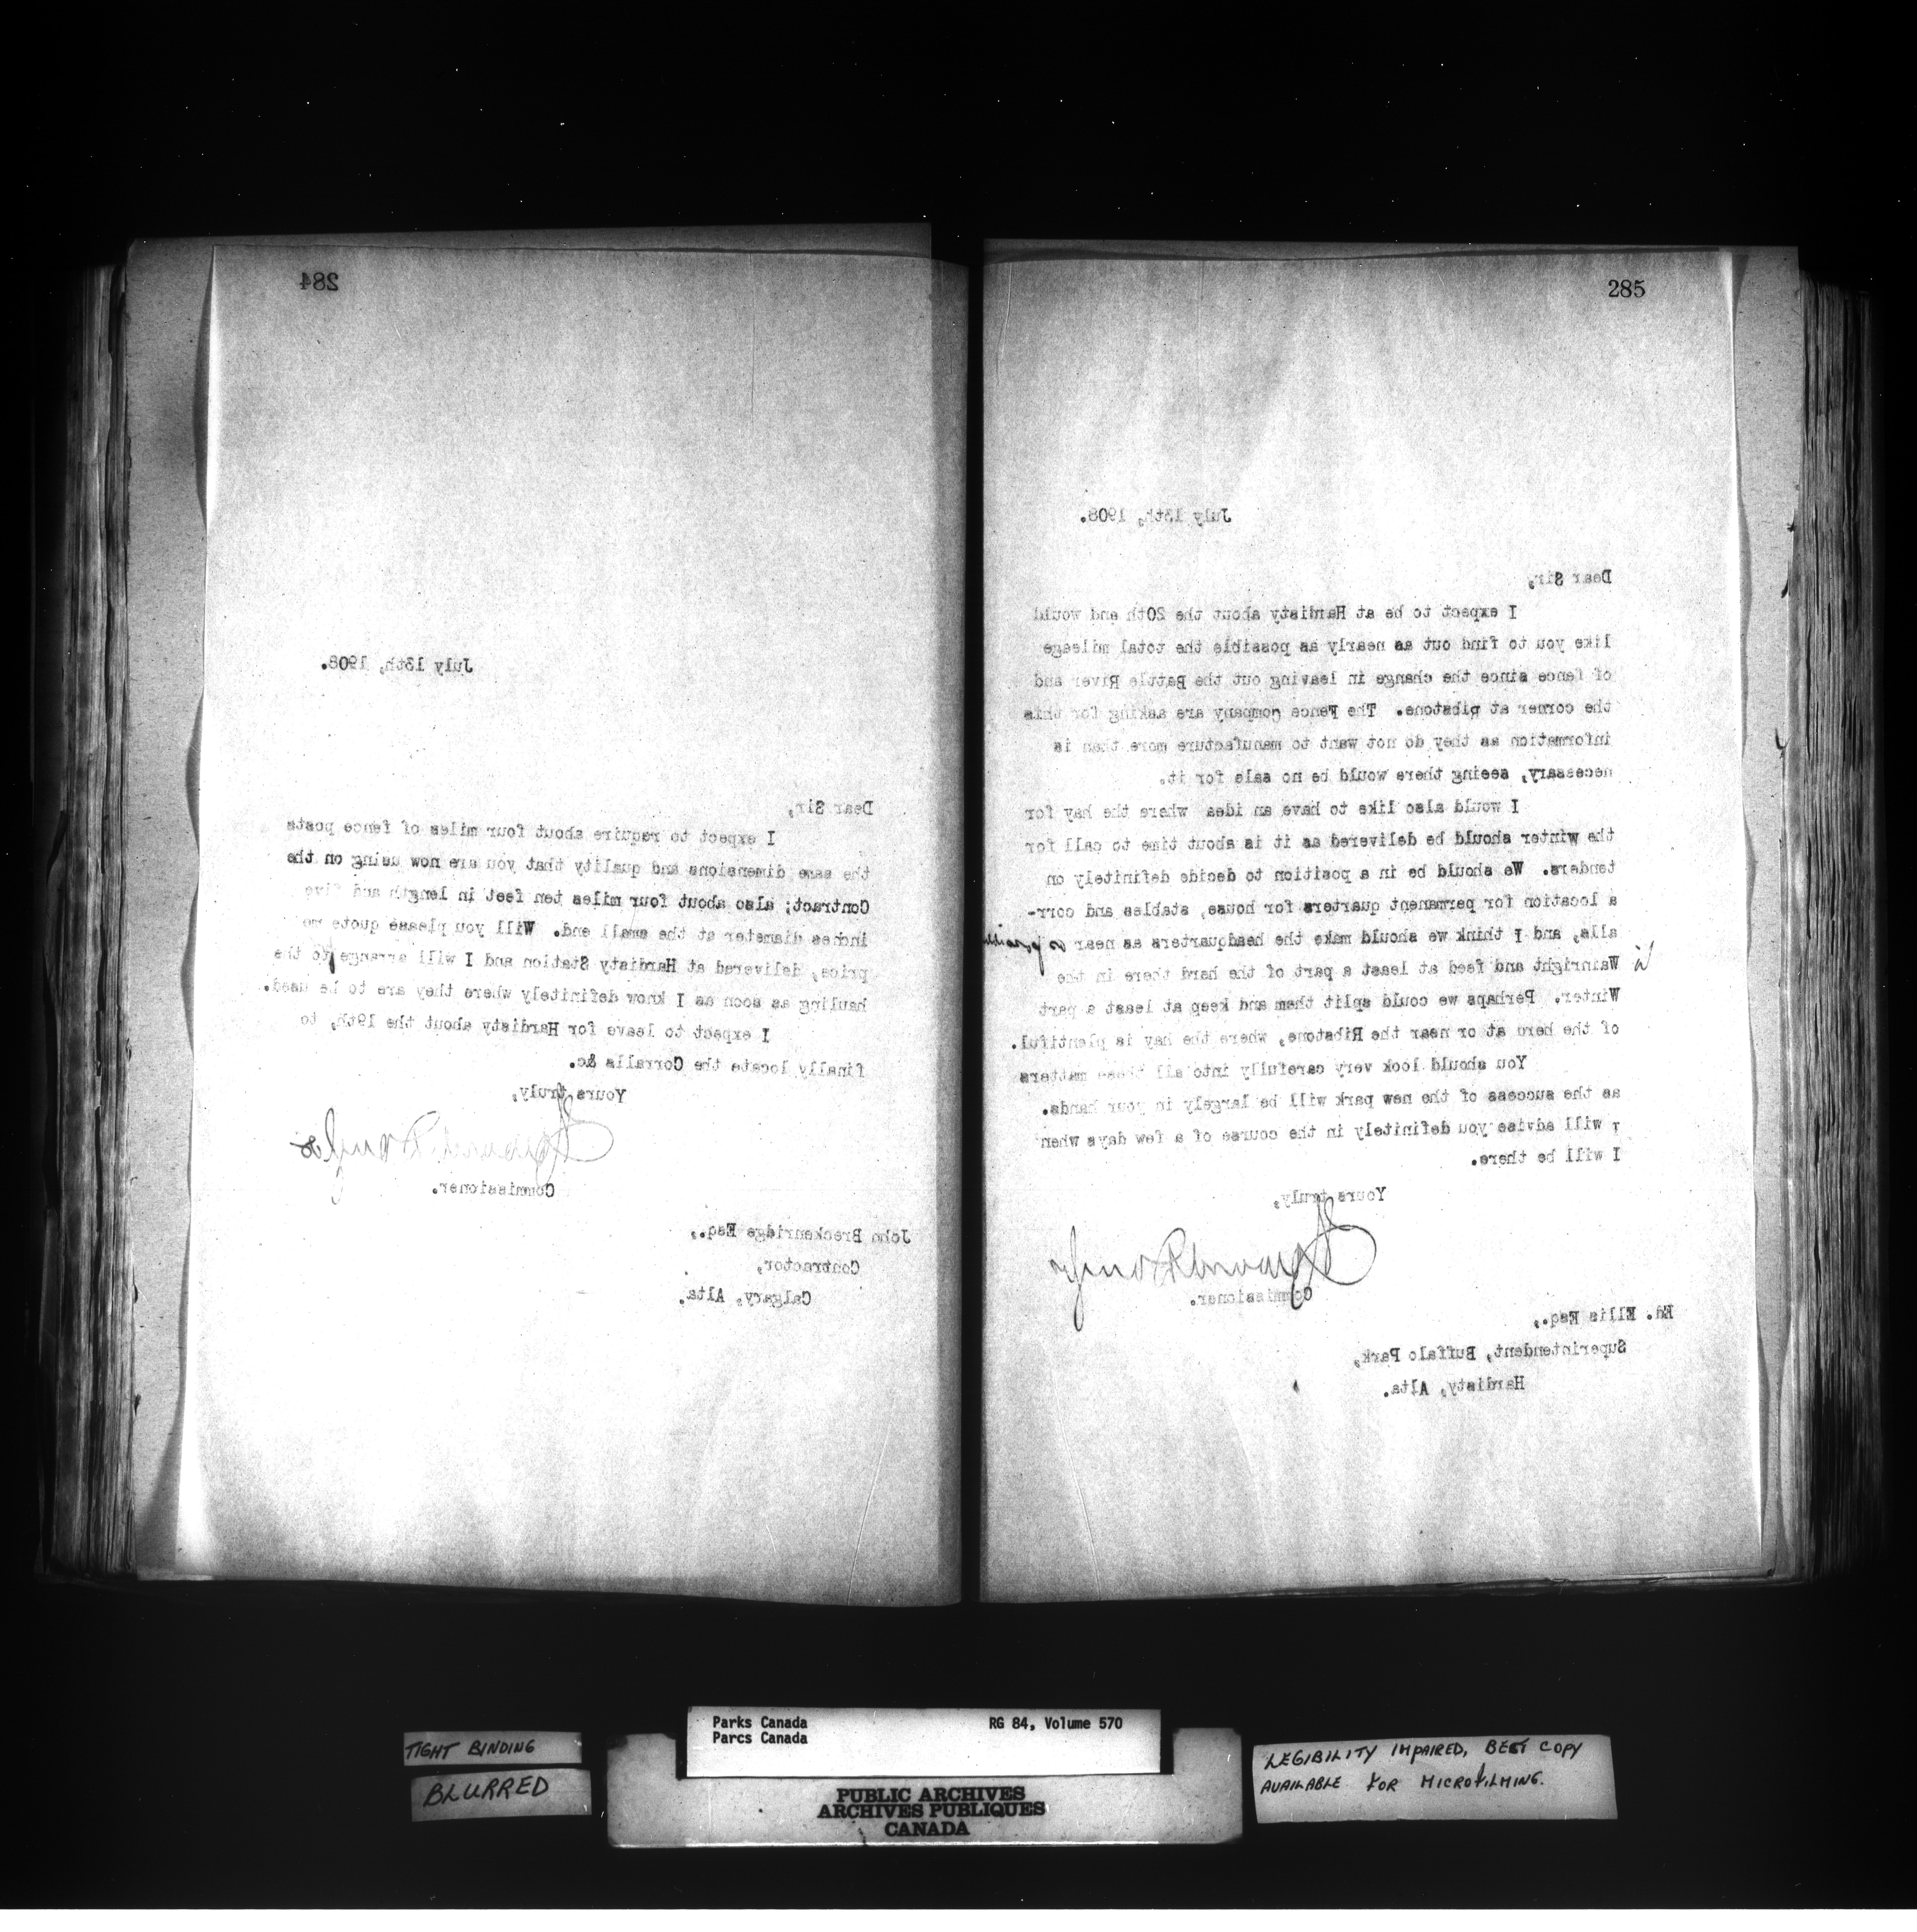 284
July 13th, 1908.
Dear Sir,
I expect to require about four miles of fence posts
the same dimensions and quality that you are now using on the
Contract; also about four miles ten feet in length and five
inches diameter at the small end. Will you please quote me
price, delivered at Hardisty Station and I will arrange to the
hauling as soon as I know definitely where they are to be used.
I expect to leave for Hardisty about the 19th, to
finally locate the Corralls &c.
Yours truly,
Howard Douglas
Commissioner.
John Breckenridge Esq.,
Contractor,
Calgary, Alta.
285
July 13th, 1908.
Dear Sir,
I expect to be at Hardisty about the 20th and would
like you to find out as nearly as possible the total mileage
of fence since the change in leaving out the Battle River and
the corner at Ribstone. The Fence company are asking for this
information as they do not want to manufacture more than is
necessary, seeing there would be no sale for it.
I would also like to have an idea where the hay for
the winter should be delivered as it is about time to call for
tenders. We should be in a position to decide definitely on
a location for permanent quarters for house, stables and corr-
alls, and I think we should make the headquarters as near as possible
Wainright and feed at least a part of the herd there in the
Winter. Perhaps we could split them and keep at least a part
of the herd at or near the Ribstone, where the hay is plentiful.
You should look very carefully into all these matters
as the success of the new park will be largely in your hands.
I will advise you definitely in the course of a few days when
I will be there.
Yours truly,
Howard Douglas
Commissioner.
Ed. Ellis Esq.,
Superintendent, Buffalo Park,
Hardisty, Alta.
TIGHT BINDING
BLURRED
Parks Canada RG 84, Volume 570
Parcs Canada
PUBLIC ARCHIVES
ARCHIVES PUBLIQUES
CANADA
LEGIBILITY IMPAIRED, BEST COPY
AVAILABLE FOR MICROFILMING.